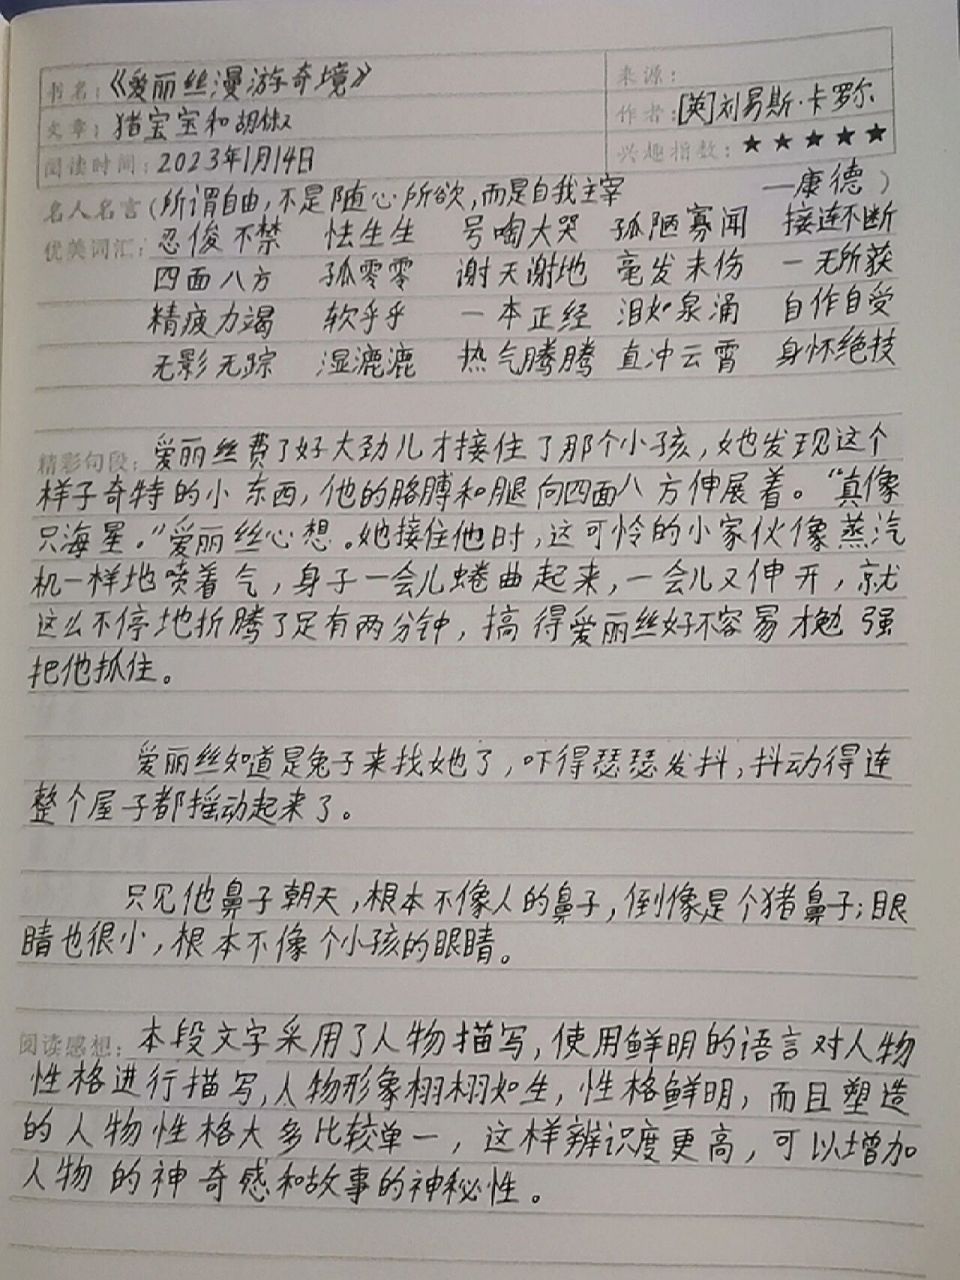 书名：《爱丽丝漫游奇境》
来源：
文章：猪宝宝和胡椒
作者：[英]刘易斯·卡罗尔
阅读时间：2023年1月14日
兴趣指数：★★★★★
名人名言（所谓自由，不是随心所欲，而是自我主宰 —康德）
优美词汇：忍俊不禁 怯生生 号啕大哭 孤陋寡闻 接连不断
四面八方 孤零零 谢天谢地 毫发未伤 一无所获
精疲力竭 软乎乎 一本正经 泪如泉涌 自作自受
无影无踪 湿漉漉 热气腾腾 直冲云霄 身怀绝技
精彩句段：爱丽丝费了好大劲儿才接住了那个小孩，她发现这个
样子奇特的小东西，他的胳膊和腿向四面八方伸展着。“真像
只海星。”爱丽丝心想。她接住他时，这可怜的小家伙像蒸汽
机一样地喷着气，身子一会儿蜷曲起来，一会儿又伸开，就
这么不停地折腾了足有两分钟，搞得爱丽丝好不容易才勉强
把他抓住。
爱丽丝知道是兔子来找她了，吓得瑟瑟发抖，抖动得连
整个屋子都摇动起来了。
只见他鼻子朝天，根本不像人的鼻子，倒像是个猪鼻子；眼
睛也很小，根本不像个小孩的眼睛。
阅读感想：本段文字采用了人物描写，使用鲜明的语言对人物
性格进行描写，人物形象栩栩如生，性格鲜明，而且塑造
的人物性格大多比较单一，这样辨识度更高，可以增加
人物的神奇感和故事的神秘性。